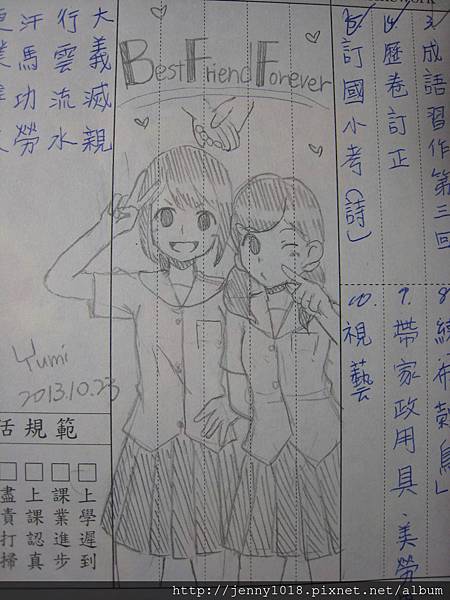 3. 成語習作第三回
4. 歷卷訂正
5. 訂國小考(詩)
7. 帶家政用具、美勞
10. 視藝
Best Friend Forever
大義滅親
行雲流水
汗馬功勞
Yumi
2013.10.23
活規範
上學遲到
課業進步
上課認真
盡責打掃
http://jenny1018.pixnet.net/album